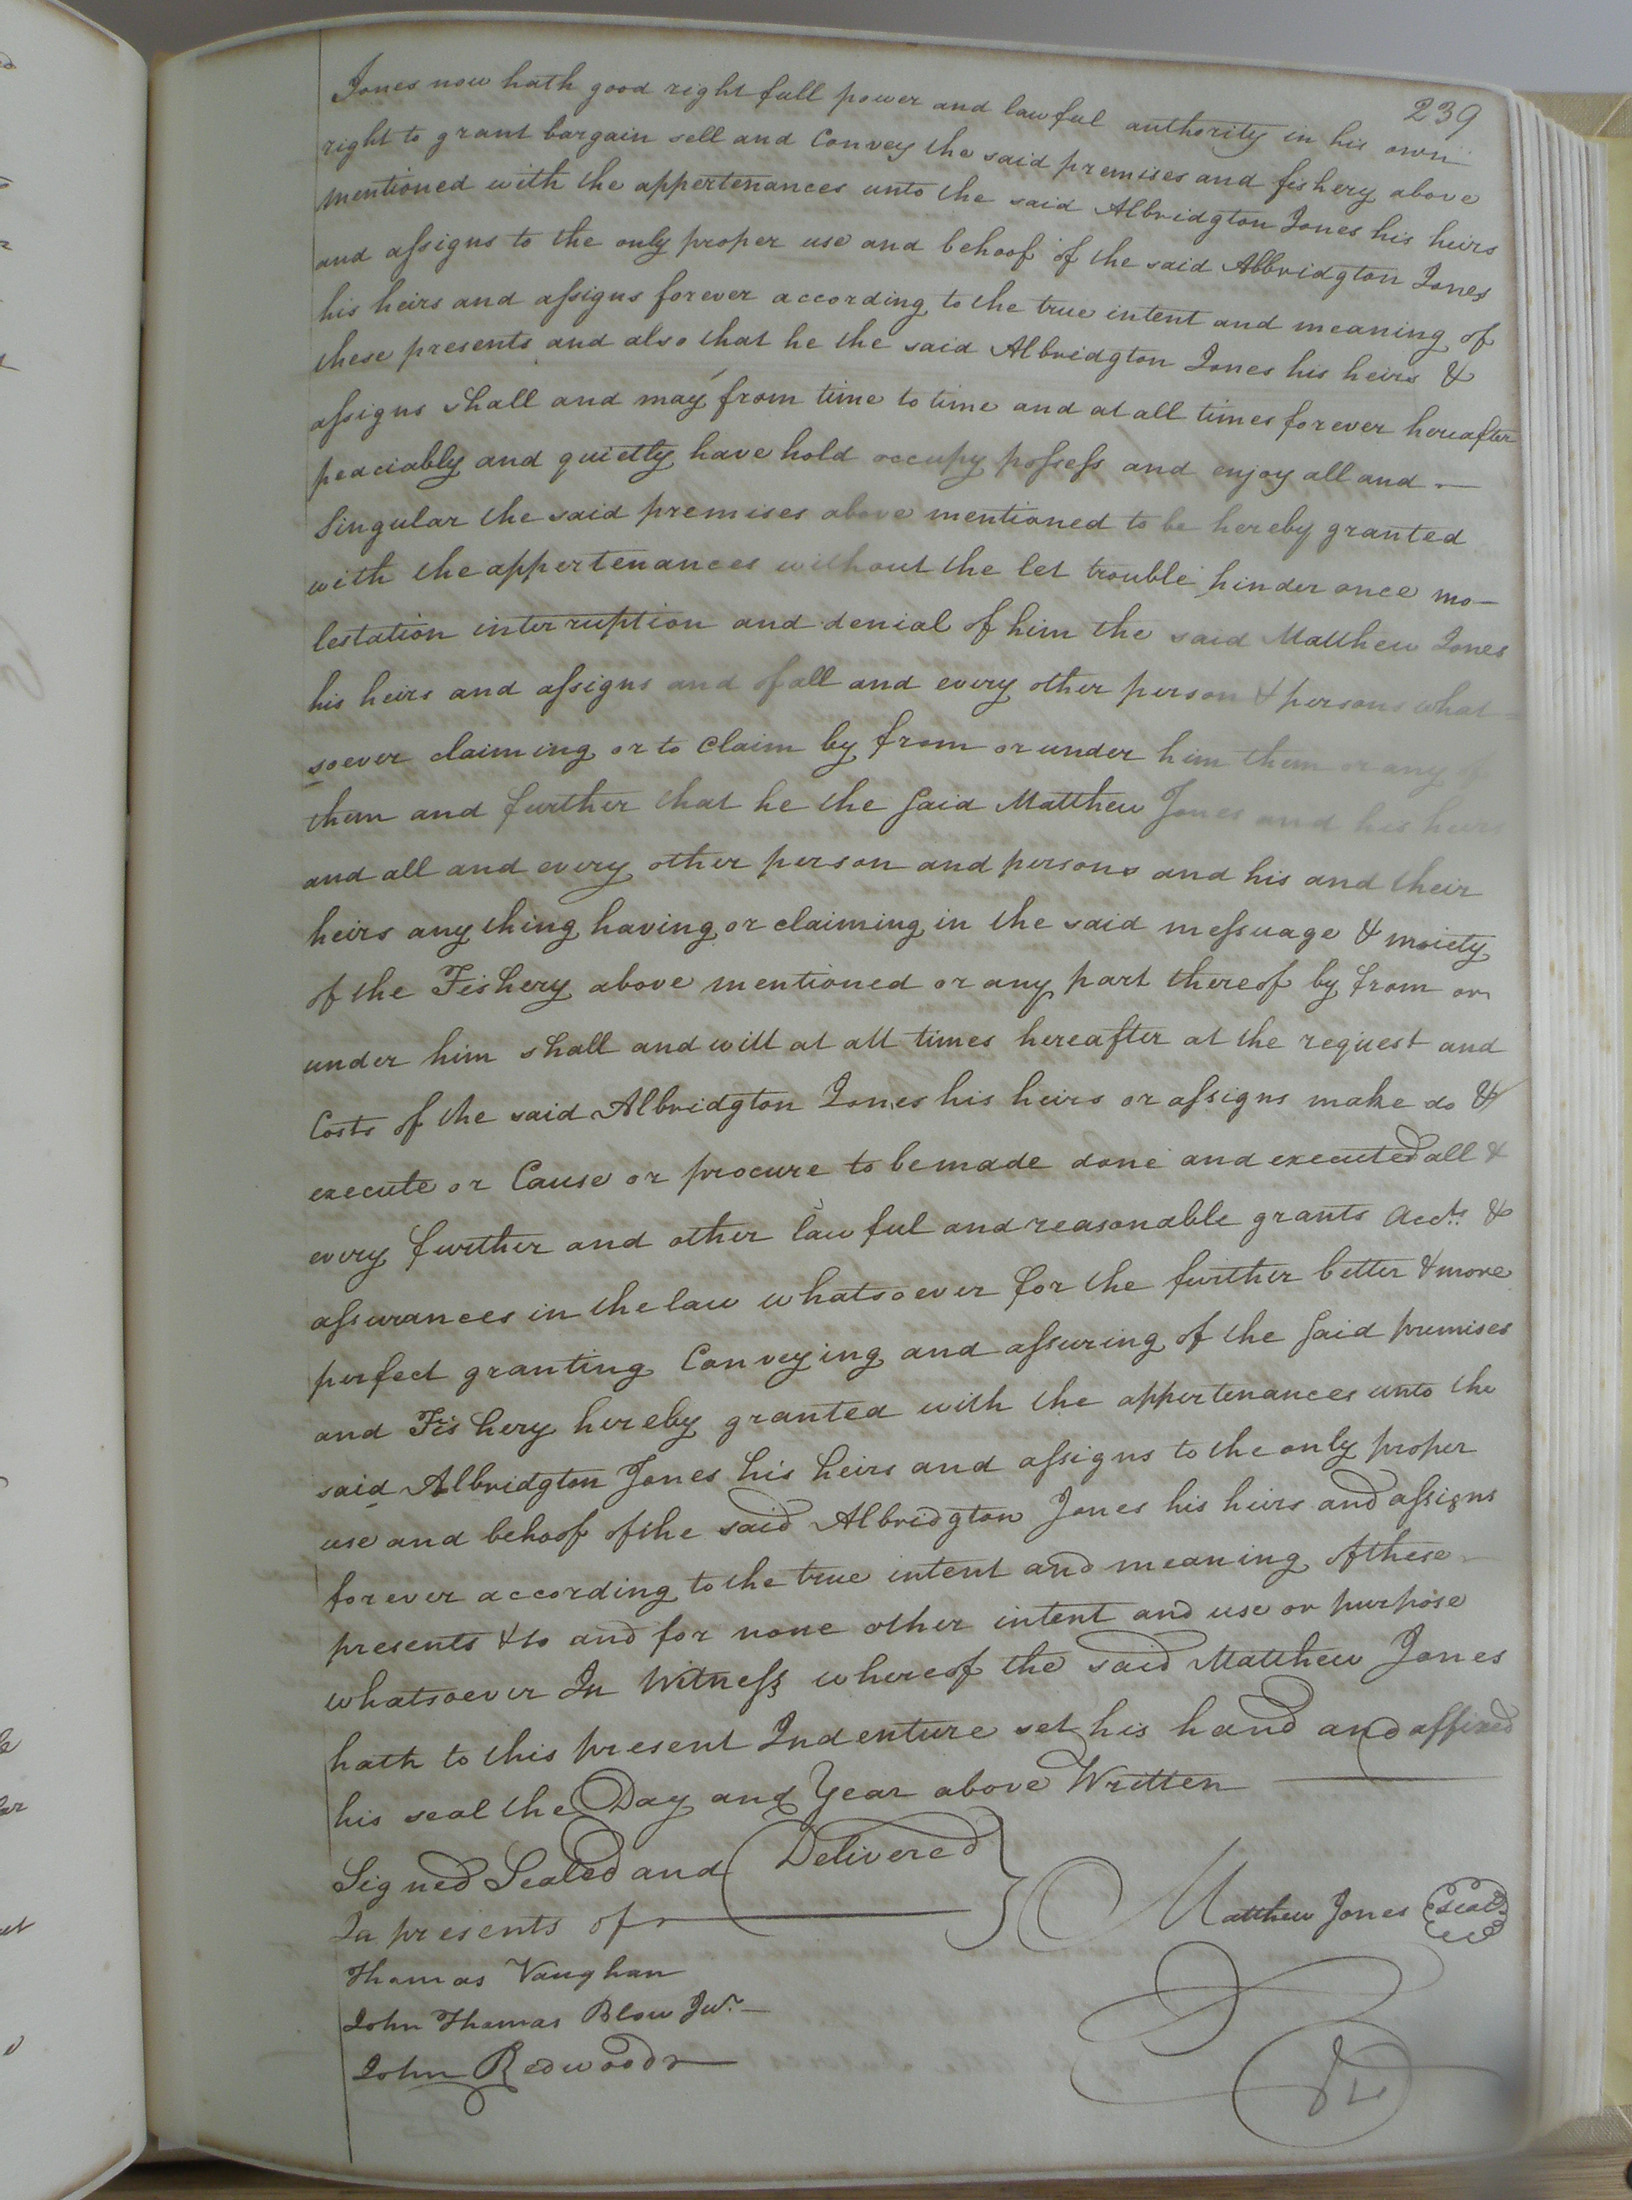 239
Jones now hath good right full power and lawful authority in his own
right to grant bargain sell and Convey the said premises and fishery above
mentioned with the appertenances unto the said Albridgton Jones his heirs
and assigns to the only proper use and behoof of the said Albridgton Jones
his heirs and assigns forever according to the true intent and meaning of
these presents and also that he the said Albridgton Jones his heirs &
assigns shall and may from time to time and at all times forever hereafter
peaciably and quietly have hold occupy possess and enjoy all and
Singular the said premises above mentioned to be hereby granted
with the appertenances without the let trouble hinder ance mo-
lestation interruption and denial of him the said Matthew Jones
his heirs and assigns and of all and every other person & persons what-
soever claiming or to Claim by from or under him them or any of
them and further that he the said Matthew Jones and his heirs
and all and every other person and persons and his and their
heirs any thing having or claiming in the said messuage & moiety
of the Fishery above mentioned or any part thereof by from or
under him shall and will at all times hereafter at the request and
Costs of the said Albridgton Jones his heirs or assigns make do &
execute or Cause or procure to be made done and executed all &
every further and other lawful and reasonable grants Acts &
assurances in the law whatsoever for the further better & more
perfect granting Conveying and assuring of the said premises
and Fishery hereby granted with the appertenances unto the
said Albridgton Jones his heirs and assigns to the only proper
use and behoof of the said Albridgton Jones his heirs and assigns
forever according to the true intent and meaning of these
presents & to and for none other intent and use or purpose
whatsoever In Witness whereof the said Matthew Jones
hath to this present Indenture set his hand and affixed
his seal the Day and Year above Written
Signed Sealed and Delivered
In presents of
Matthew Jones Seal
Thomas Vaughan
John Thomas Blow Junr.
John Redwood